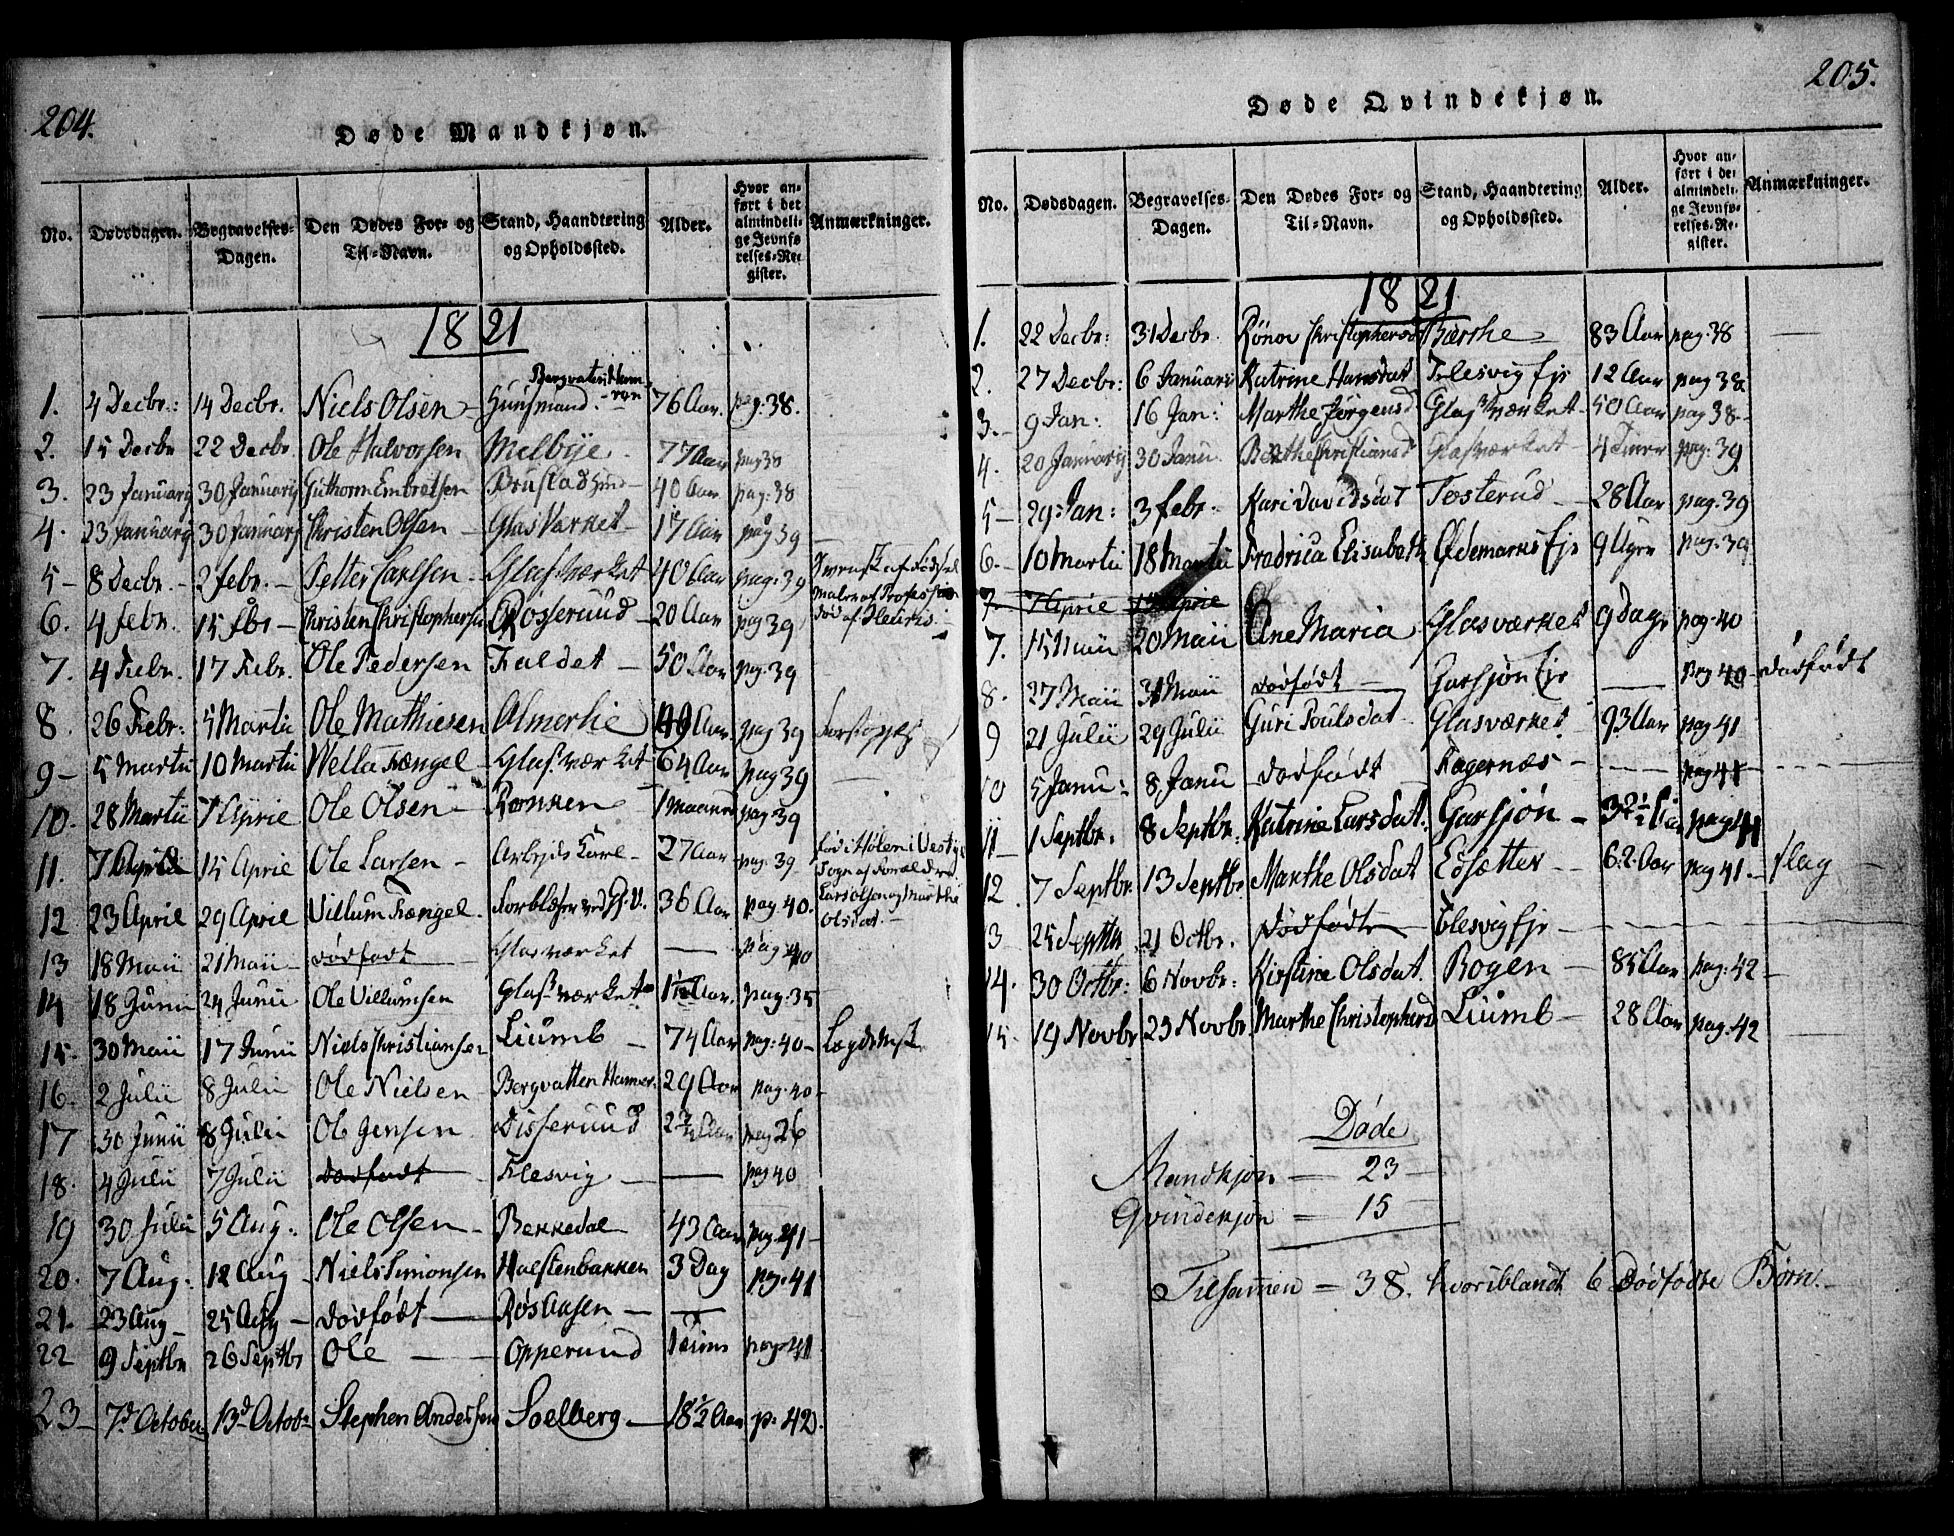 204.
Døde Mandkjøn.
No. Dødsdagen. Begravelses-Dagen. Den Dødes For- og Til-Navn. Stand, Haandtering og Opholdssted. Alder. Hvor anført i det almindelige Jevnførelses-Register. Anmærkninger.
1821
1. 4 Decbr: 14 Decbr. Niels Olsen Huusmand. 76 Aar. pag: 38.
2. 15 Decbr 22 Decbr. Ole Halvorsen Melbye 77 Aar pag 38
3. 23 Januarij 30 Januarij Guthorm Embretsen Brustad 40 Aar. pag: 38
4. 23 Januarij 30 Januarij Christen Olsen GlasVærket 17 Aar pag 39
5 8 Decbr. 2 febr. Petter Carlsen Glasværket 40 Aar pag: 39 Svensk af Fødsel Maler af Profession død af Pleuris
6. 4 febr. 15 fbr Christen Christophersen Rosserud 20 Aar pag 39
7. 4 Febr. 17 Febr. Ole Pedersen Faldet 50 Aar pag: 39
8. 26 Febr: 5 Martii Ole Mathiesen Almerlie 49 Aar. pag 39
9 5 Martii 10 Martii Wella Fængel Glasværket 64 Aar pag 39
10. 28 Martii 1 Aprie Ole Olsen Rønken 1 Maaned pag: 39
11. 7 Aprie 15 Aprie Ole Larsen Arbejds Karl 27 Aar pag: 39 fød i Hølen i Vestbye Sogn af Forældre Lars Olsen og Marthe Olsdat.
12 23 Aprie 29 Aprie Villum Fængel. 36 Aar pag: 40.
13 18 Maii 21 Maii dødfødt Glasværket pag 40
14 18 Junii 24 Junii Ole Villumsen Glasværket 1½ Aar. pag: 35
15 30 Maii 17 Junii Niels Christiansen Liumb 74 Aar pag: 40 Lægdslem
16. 2 Julii 8 Julii Ole Nielsen Bergvatten Hamer. 29 Aar pag: 40
17 30 Junii 8 Julii Ole Jensen Disserund pag 26
18. 4 Julii 7 Julii Dødfødt Flesvig pag 40
19 30 Julii 5 Aug: Ole Olsen Bekkedal 43 Aar pag: 41
20. 7 Aug: 12 Aug Niels Simonsen Holstenbakken 3 Dag pag: 41
21. 23 Aug 25 Aug dødfødt Røs Aasen
22 9 Septbr 26 Septbr Ole Opperund 1 Time pag 41
23 7d October 13d Octob Stephen Andersen Soelberg 18½ Aar p. 42.
205.
Døde Qvindekjøn.
No. Dødsdagen. Begravelses-Dagen. Den Dødes For- og Til-Navn. Stand, Haandtering og Opholdssted. Alder. Hvor anført i det almindelige Jevnførelses-Register. Anmærkninger.
1821
1. 22 Decbr: 31 Decbr. Rønov Christophersd Bærthe 83 Aar pag: 38
2. 27 Decbr: 6 Januarii Katrine Hansdat Flesvig Eje 12 Aar pag 38
3. 9 Jan: 16 Jan: Marthe Jørgensd Glasværket 50 Aar pag 38
4. 20 Januarij 30 Janu. Berthe Christiansd Glasværket 4 Timer pag: 39
5 29 Jan: 3 febr. Kari Davidsdat Tosterud 28 Aar pag: 39
6. 10 Martii 18 Martii Fredrica Elisabeth Ødemarks Eje 9 Uger pag: 39
7. 7 Aprie 15 Aprie
7. 15 Maii 20 Maii Ane Maria Glasværket 9 dage pag: 40
8. 27 Maii 31 Maii dødfødt Garsjøn Eje pag 40 dødfødt
9 21 Julii 29 Julii Guri Poulsdat Glasværket 93 Aar pag 41
10 5 Janu: 8 Janu dødfødt Kagernæs pag 41
11 1 Septbr. 8 Septbr. Katrine Larsdat. Garsjøn 32½ pag 41
12. 7 Septbr. 13 Septbr. Marthe Olsdat Edsætter 62. Aar pag 41 slag
13 25 Septbr. 21 Octbr. Dødfødt Flesvig Eje
14. 30 Octbr: 6 Novbr: Kirstine Olsdat. Bogen 85 Aar pag: 42
15. 19 Novbr 25 Novbr. Marthe Christophersd Liumb 28 Aar pag: 42
Døde
Mandkjøn = 23
Qvindekjøn = 15
Tilsammen = 38. hvoriblandt 6 Dødfødte Børn.